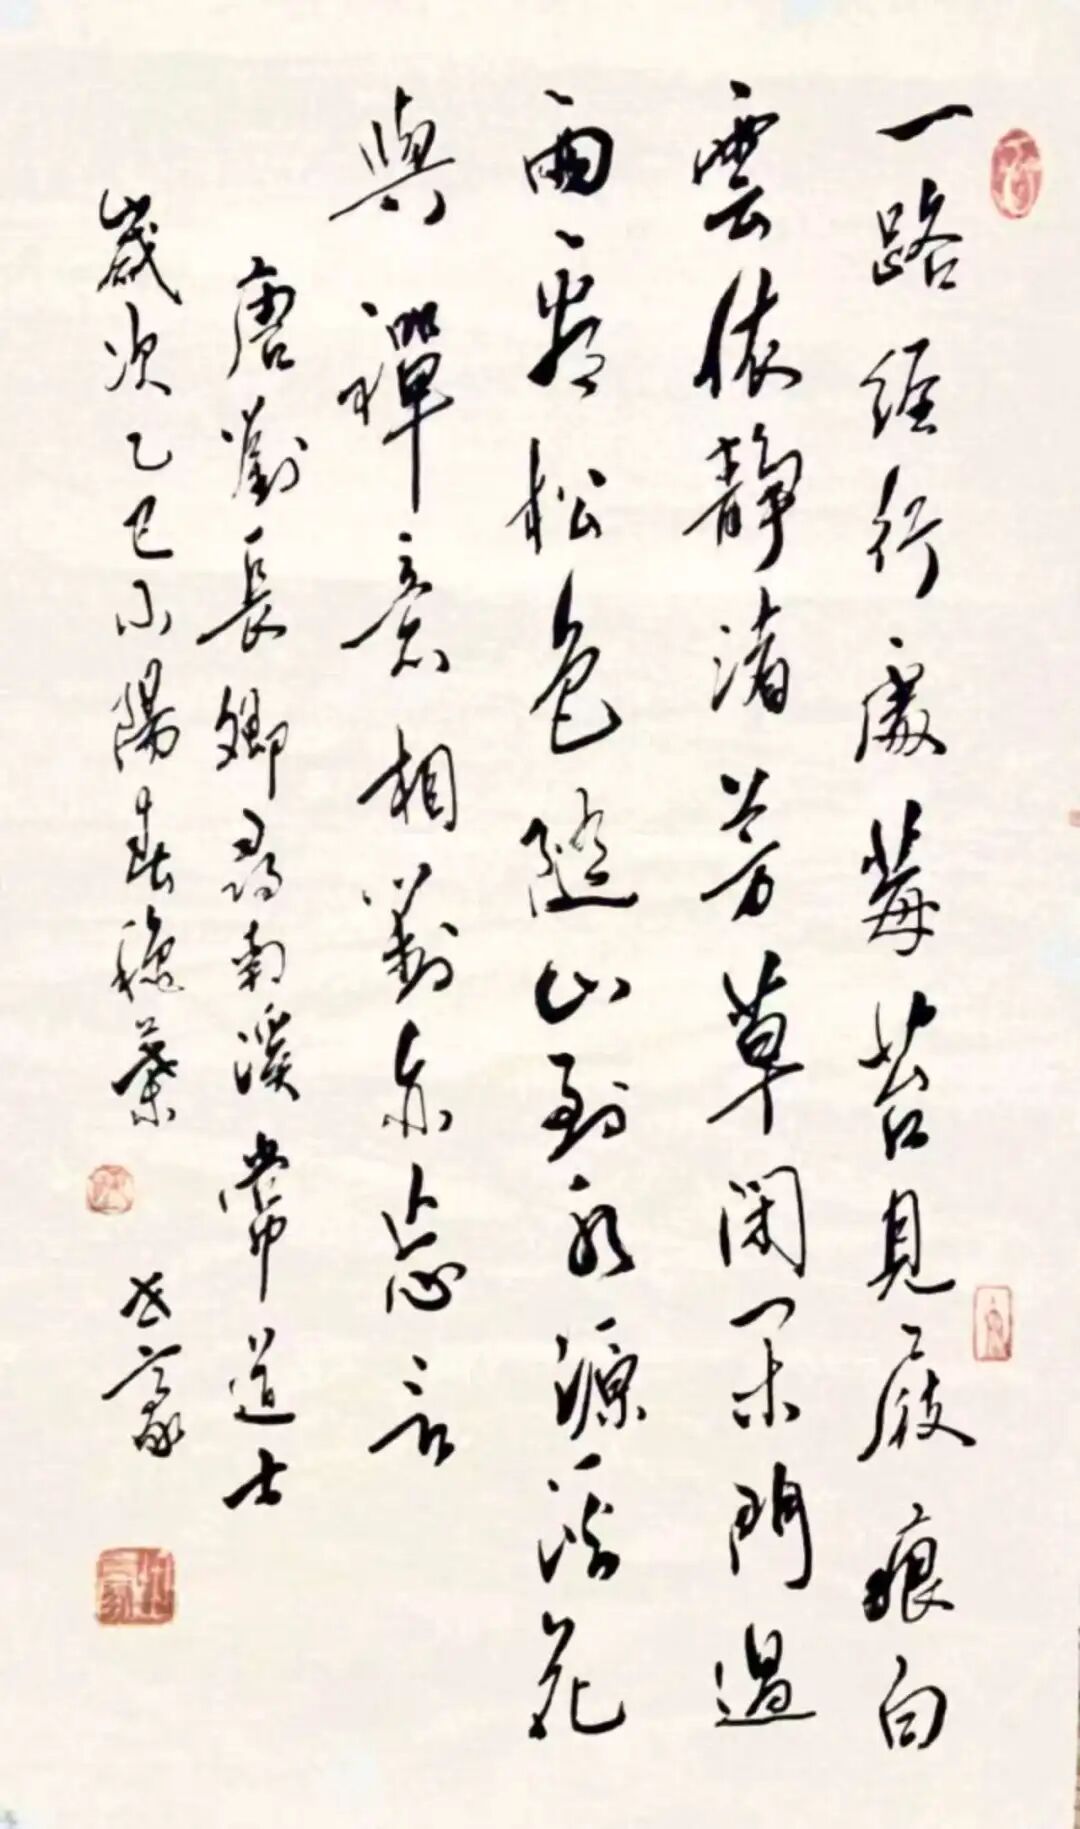 一路經行處莓苔見屐痕白
雲依靜渚芳草閑閉門過
雨看松色隨山到水源溪花
與禪意相對亦忘言
唐劉長卿尋南溪常道士
歲次乙巳小陽春穗葉